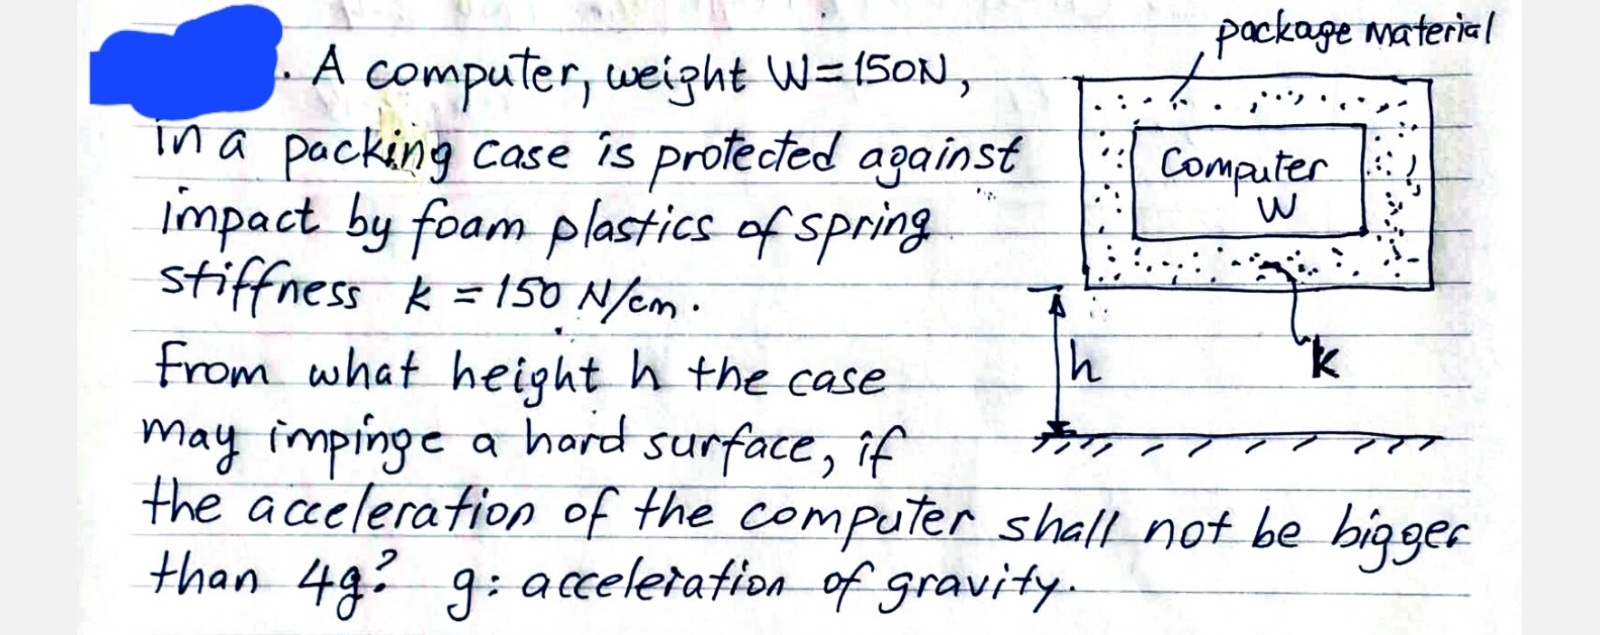 package material
. A computer, weight W=150N,
in a packing case is protected against
impact by foam plastics of spring
stiffness k = 150 N/cm.
From what height h the case
may impinge a hard surface, if
the acceleration of the computer shall not be bigger
than 4g? g: acceleration of gravity.
Computer
W
h
k